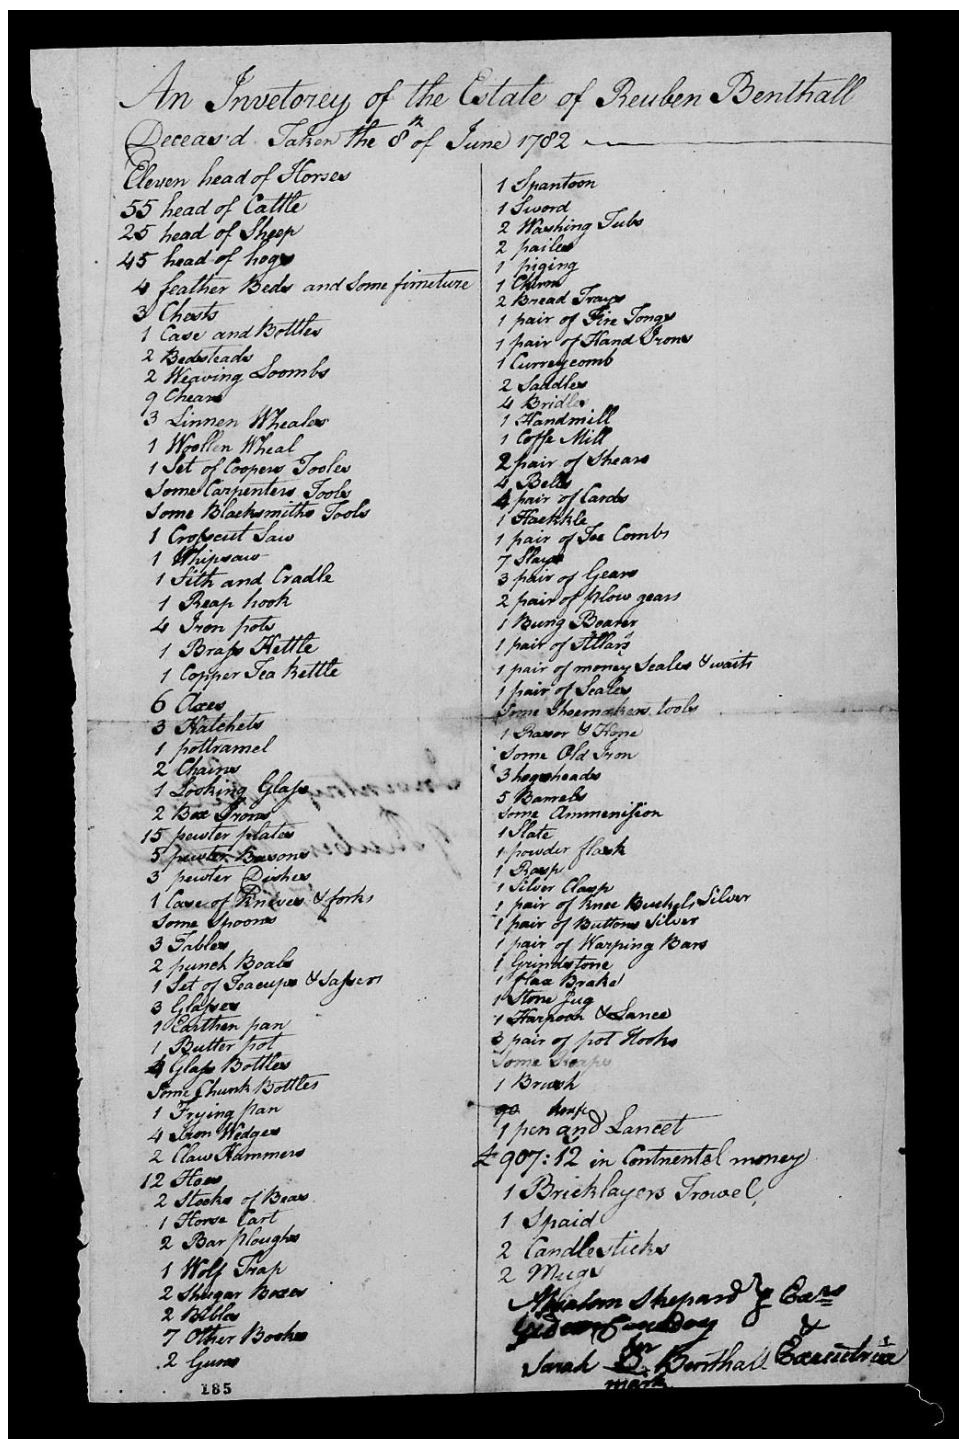 An Invetorey of the Estate of Reuben Benthall
Deceas'd Taken the 8th of June 1782
Eleven head of Horses
55 head of Cattle
25 head of Sheep
45 head of hogs
4 feather Beds and Some firneture
3 Chests
1 Case and Bottles
2 Bedsteads
2 Weaving Loombs
9 Chears
3 Linnen Wheales
1 Woollen Wheal
1 Set of Coopers Tooles
Some Carpenters Tools
Some Blacksmiths Tools
1 Crosscut Saw
1 Whipsaw
1 Sith and Cradle
1 Reap hook
4 Iron pots
1 Brass Kettle
1 Copper Tea Kettle
6 Axes
3 Hatchets
1 pottramel
2 Chains
1 Looking Glass
2 Box Irons
15 pewter plates
5 pewter Basons
3 pewter Dishes
1 Case of Knives & forks
Some Spoons
3 Tables
2 punch Boals
1 Set of Teacups & Sassers
3 Glasses
1 Earthen pan
1 Butter pot
4 Glass Bottles
Some Chunk Bottles
1 Frying pan
4 Iron Wedges
2 Claw Hammers
12 Hoes
2 Stocks of Beas
1 Horse Cart
2 Bar ploughs
1 Wolf Trap
2 Shugar Boxes
2 Bibles
7 Other Books
2 Guns
185
1 Spantoon
1 Sword
2 Washing Tubs
2 pailes
1 piging
1 Churn
2 Bread Trays
1 pair of Fire Tongs
1 pair of Hand Irons
1 Curreycomb
2 Saddles
4 Bridles
1 Handmill
1 Coffe Mill
2 pair of Shears
4 Bells
4 pair of Cards
1 Hackkle
1 pair of Combs
7 Slays
3 pair of Gears
2 pair of plow gears
1 Bung Boarer
1 pair of
1 pair of money Scales & waits
1 pair of Scales
Some Shoemakers tools
1 Rasor & Hone
Some Old Iron
3 hogsheads
5 Barrels
Some Ammenision
1 Slate
1 powder flask
1 Rasp
1 Silver Clasp
1 pair of Knee Buckels Silver
1 pair of Buttons Silver
1 pair of Warping Bars
1 Grindstone
1 flax Brake
1 Stone Jug
1 Harpoon & Lance
3 pair of pot Hooks
Some
1 Brush
1 pen and Lancet
£ 907:12 in Contnental money
1 Bricklayers Trowel
1 Spaid
2 Candlesticks
2 Mugs
Absalom Shepard } Exrs
&
Sarah Benthall Executrix
her
mark